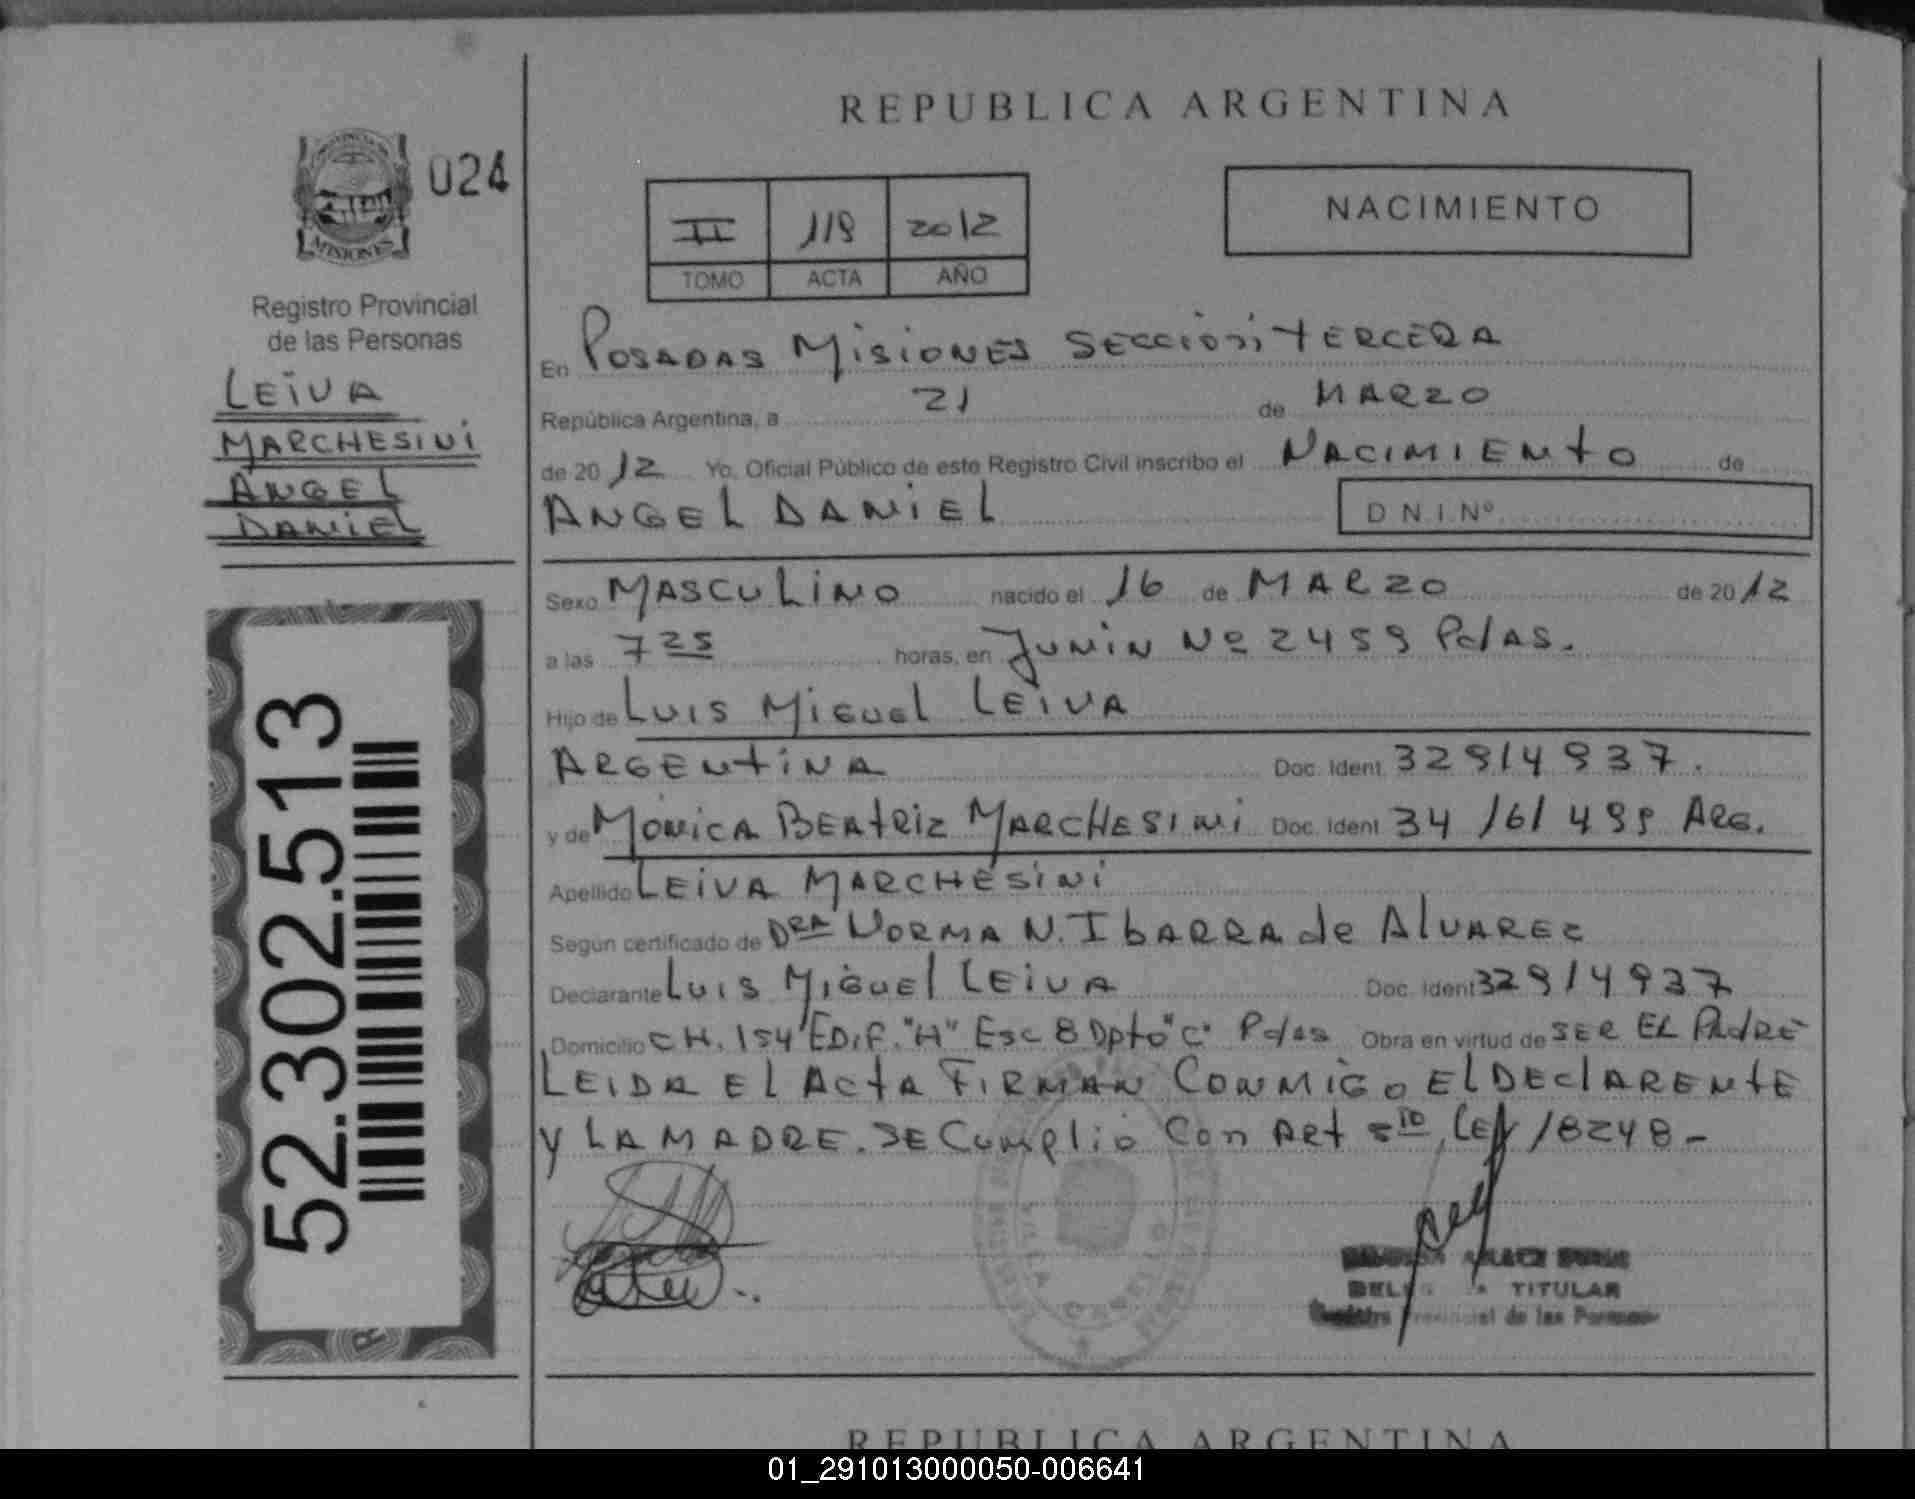 REPUBLICA ARGENTINA
024
MISIONES
II 119 2012
TOMO ACTA AÑO
NACIMIENTO
Registro Provincial
de las Personas
LEIVA
MARCHESINI
ANGEL
DANIEL
52.302.513
En POSADAS MISIONES SECCION TERCERA
República Argentina, a 21 de MARZO
de 2012 Yo, Oficial Público de este Registro Civil inscribo el NACIMIENTO de
ANGEL DANIEL D.N.I.Nº
Sexo MASCULINO nacido el 16 de MARZO de 2012
a las 7 25 horas, en JUNIN Nº 2459 Pdas.
Hijo de LUIS MIGUEL LEIVA
ARGENTINA Doc. Ident. 32914937.
y de MONICA BEATRIZ MARCHESINI Doc. Ident. 34161499 ARG.
Apellido LEIVA MARCHESINI
Según certificado de DRA NORMA N. IBARRA de ALVAREZ
Declarante LUIS MIGUEL LEIVA Doc. Ident 32914937
Domicilio CH. 154 EDIF. "H" Esc 8 Dpto "C" Pdas Obra en virtud de SER EL PADRE
LEIDA EL ACTA FIRMAN CONMIGO EL DECLARENTE
Y LA MADRE. SE Cumplio Con ART 5to, LEY 18248-
TITULAR
Provincial de las Personas
REPUBLICA ARGENTINA
01_291013000050-006641